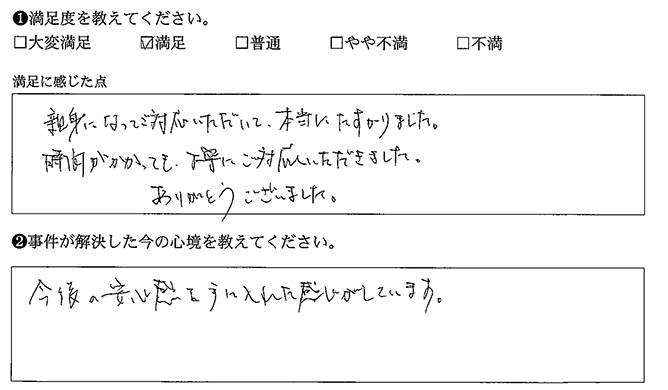 ❶満足度を教えてください。
□大変満足 ☑満足 □普通 □やや不満 □不満
満足に感じた点
親身になってご対応いただいて、本当にたすかりました。
時間がかかっても、丁寧にご対応いただきました。
ありがとうございました。
❷事件が解決した今の心境を教えてください。
今後の安心感を手に入れた感じがしています。